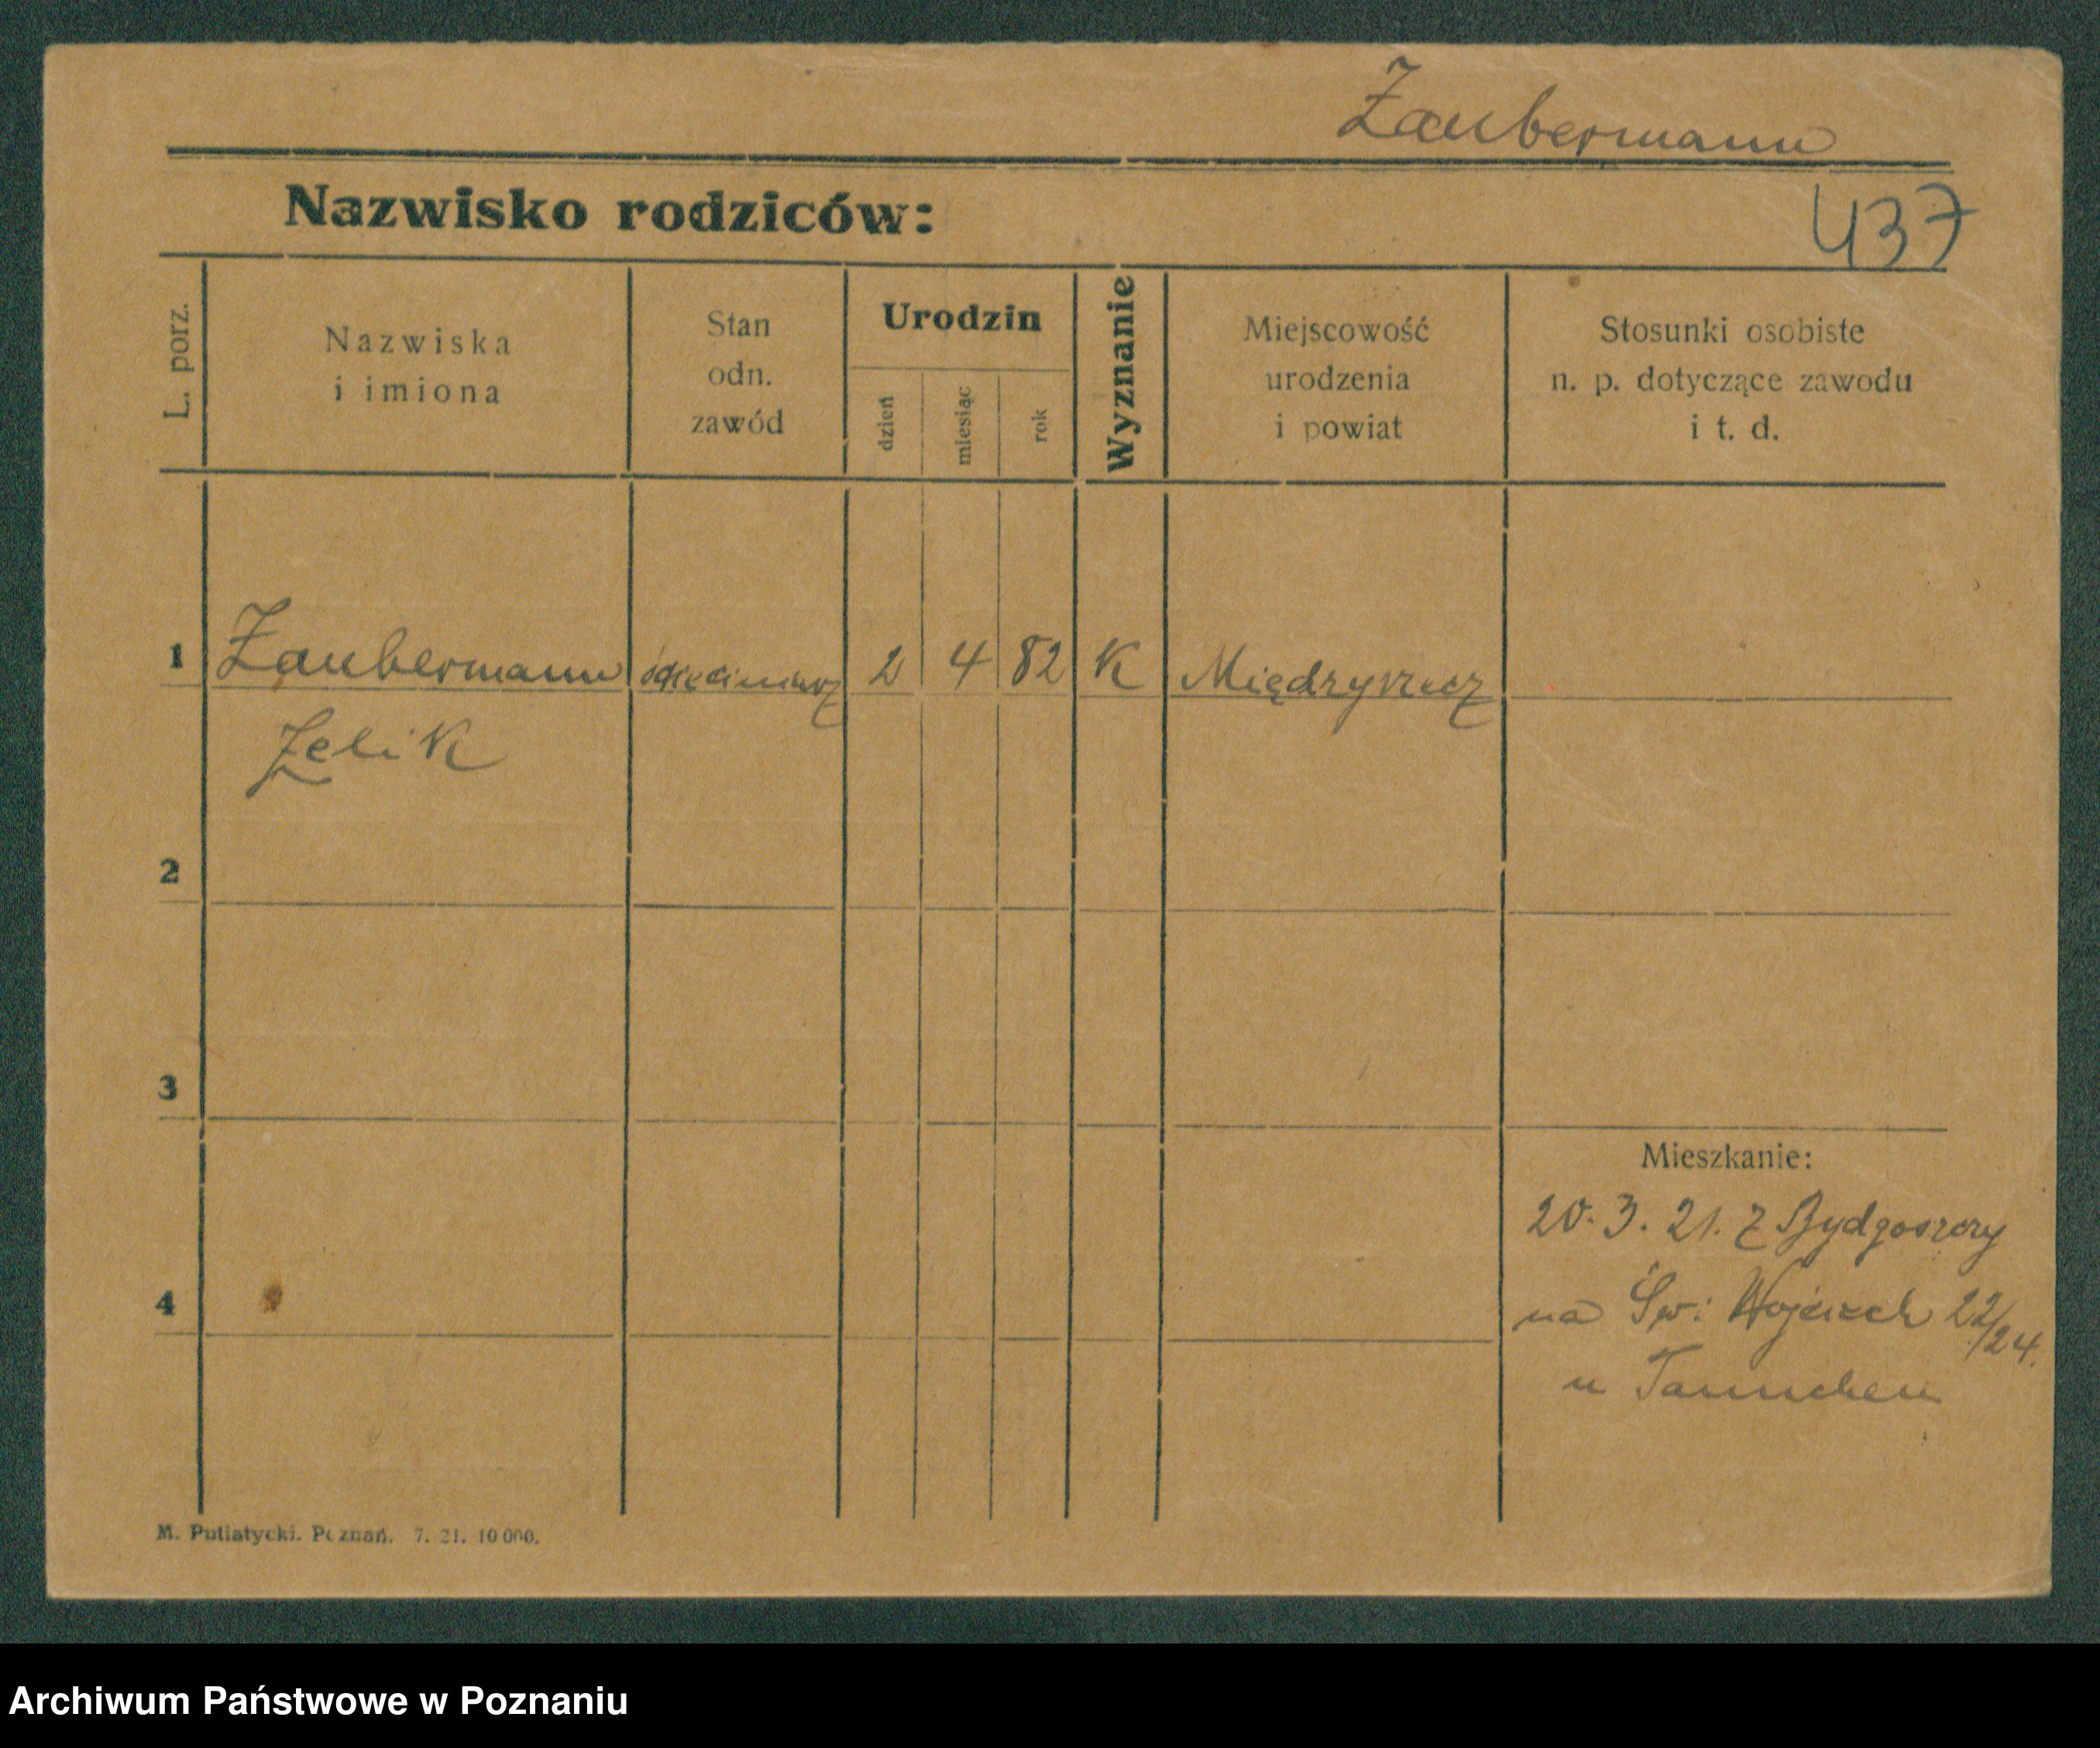 Zaubermann
Nazwisko rodziców:
437
L. porz.
Nazwiska
i imiona
Stan
odn.
zawód
Urodzin
dzień
miesiąc
rok
Wyznanie
Miejscowość
urodzenia
i powiat
Stosunki osobiste
n. p. dotyczące zawodu
i t. d.
1 Zaubermann 2 4 82 K Międzyrzecz
Zelik
2
3
Mieszkanie:
20. 3. 21. z Bydgoszczy
na Św: Wojciech 22/24.
4
u
M. Putiatycki. Poznań. 7. 21. 10 000.
Archiwum Państwowe w Poznaniu